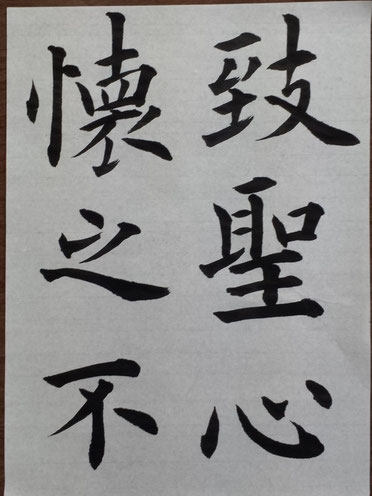 致聖心
懐之不